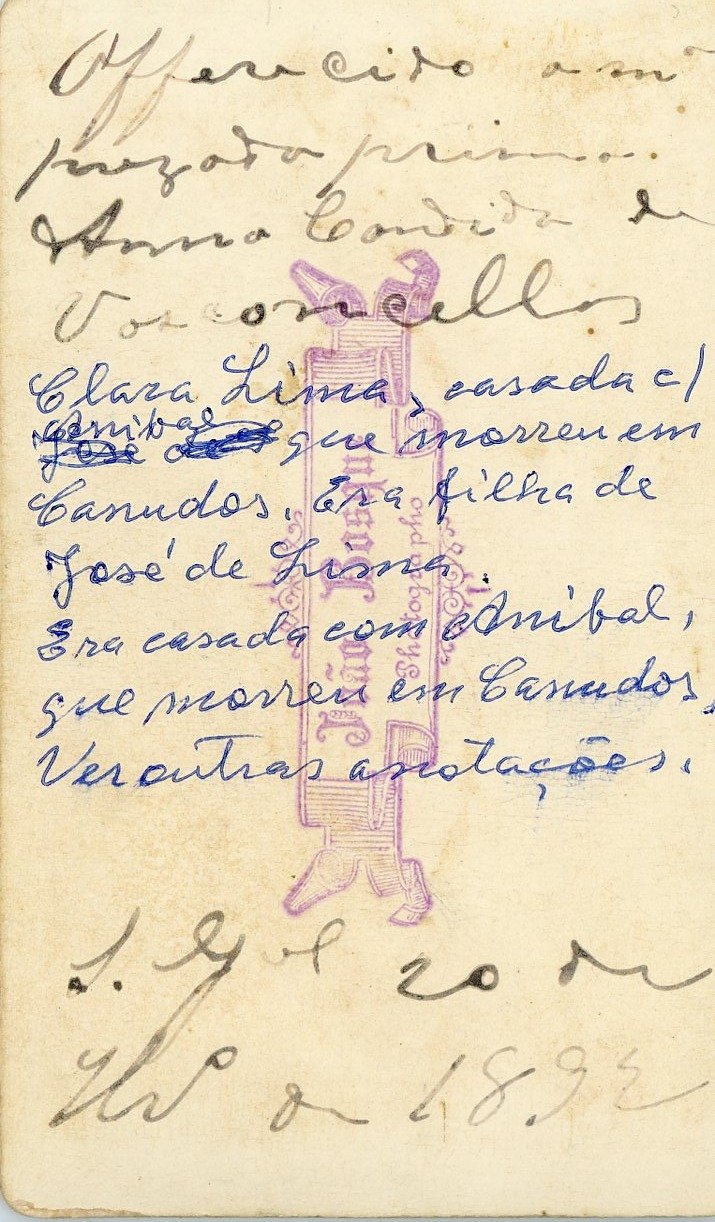 Offerecido a mª
prezada prima
Anna Candida de
Vasconcellos
Clara Lima, casada c/
Anibal
José que morreu em
Canudos. Era filha de
José de Lima.
Era casada com Anibal,
que morreu em Canudos,
Ver outras anotações.
João Bosque
Photographo
20 de
de 189